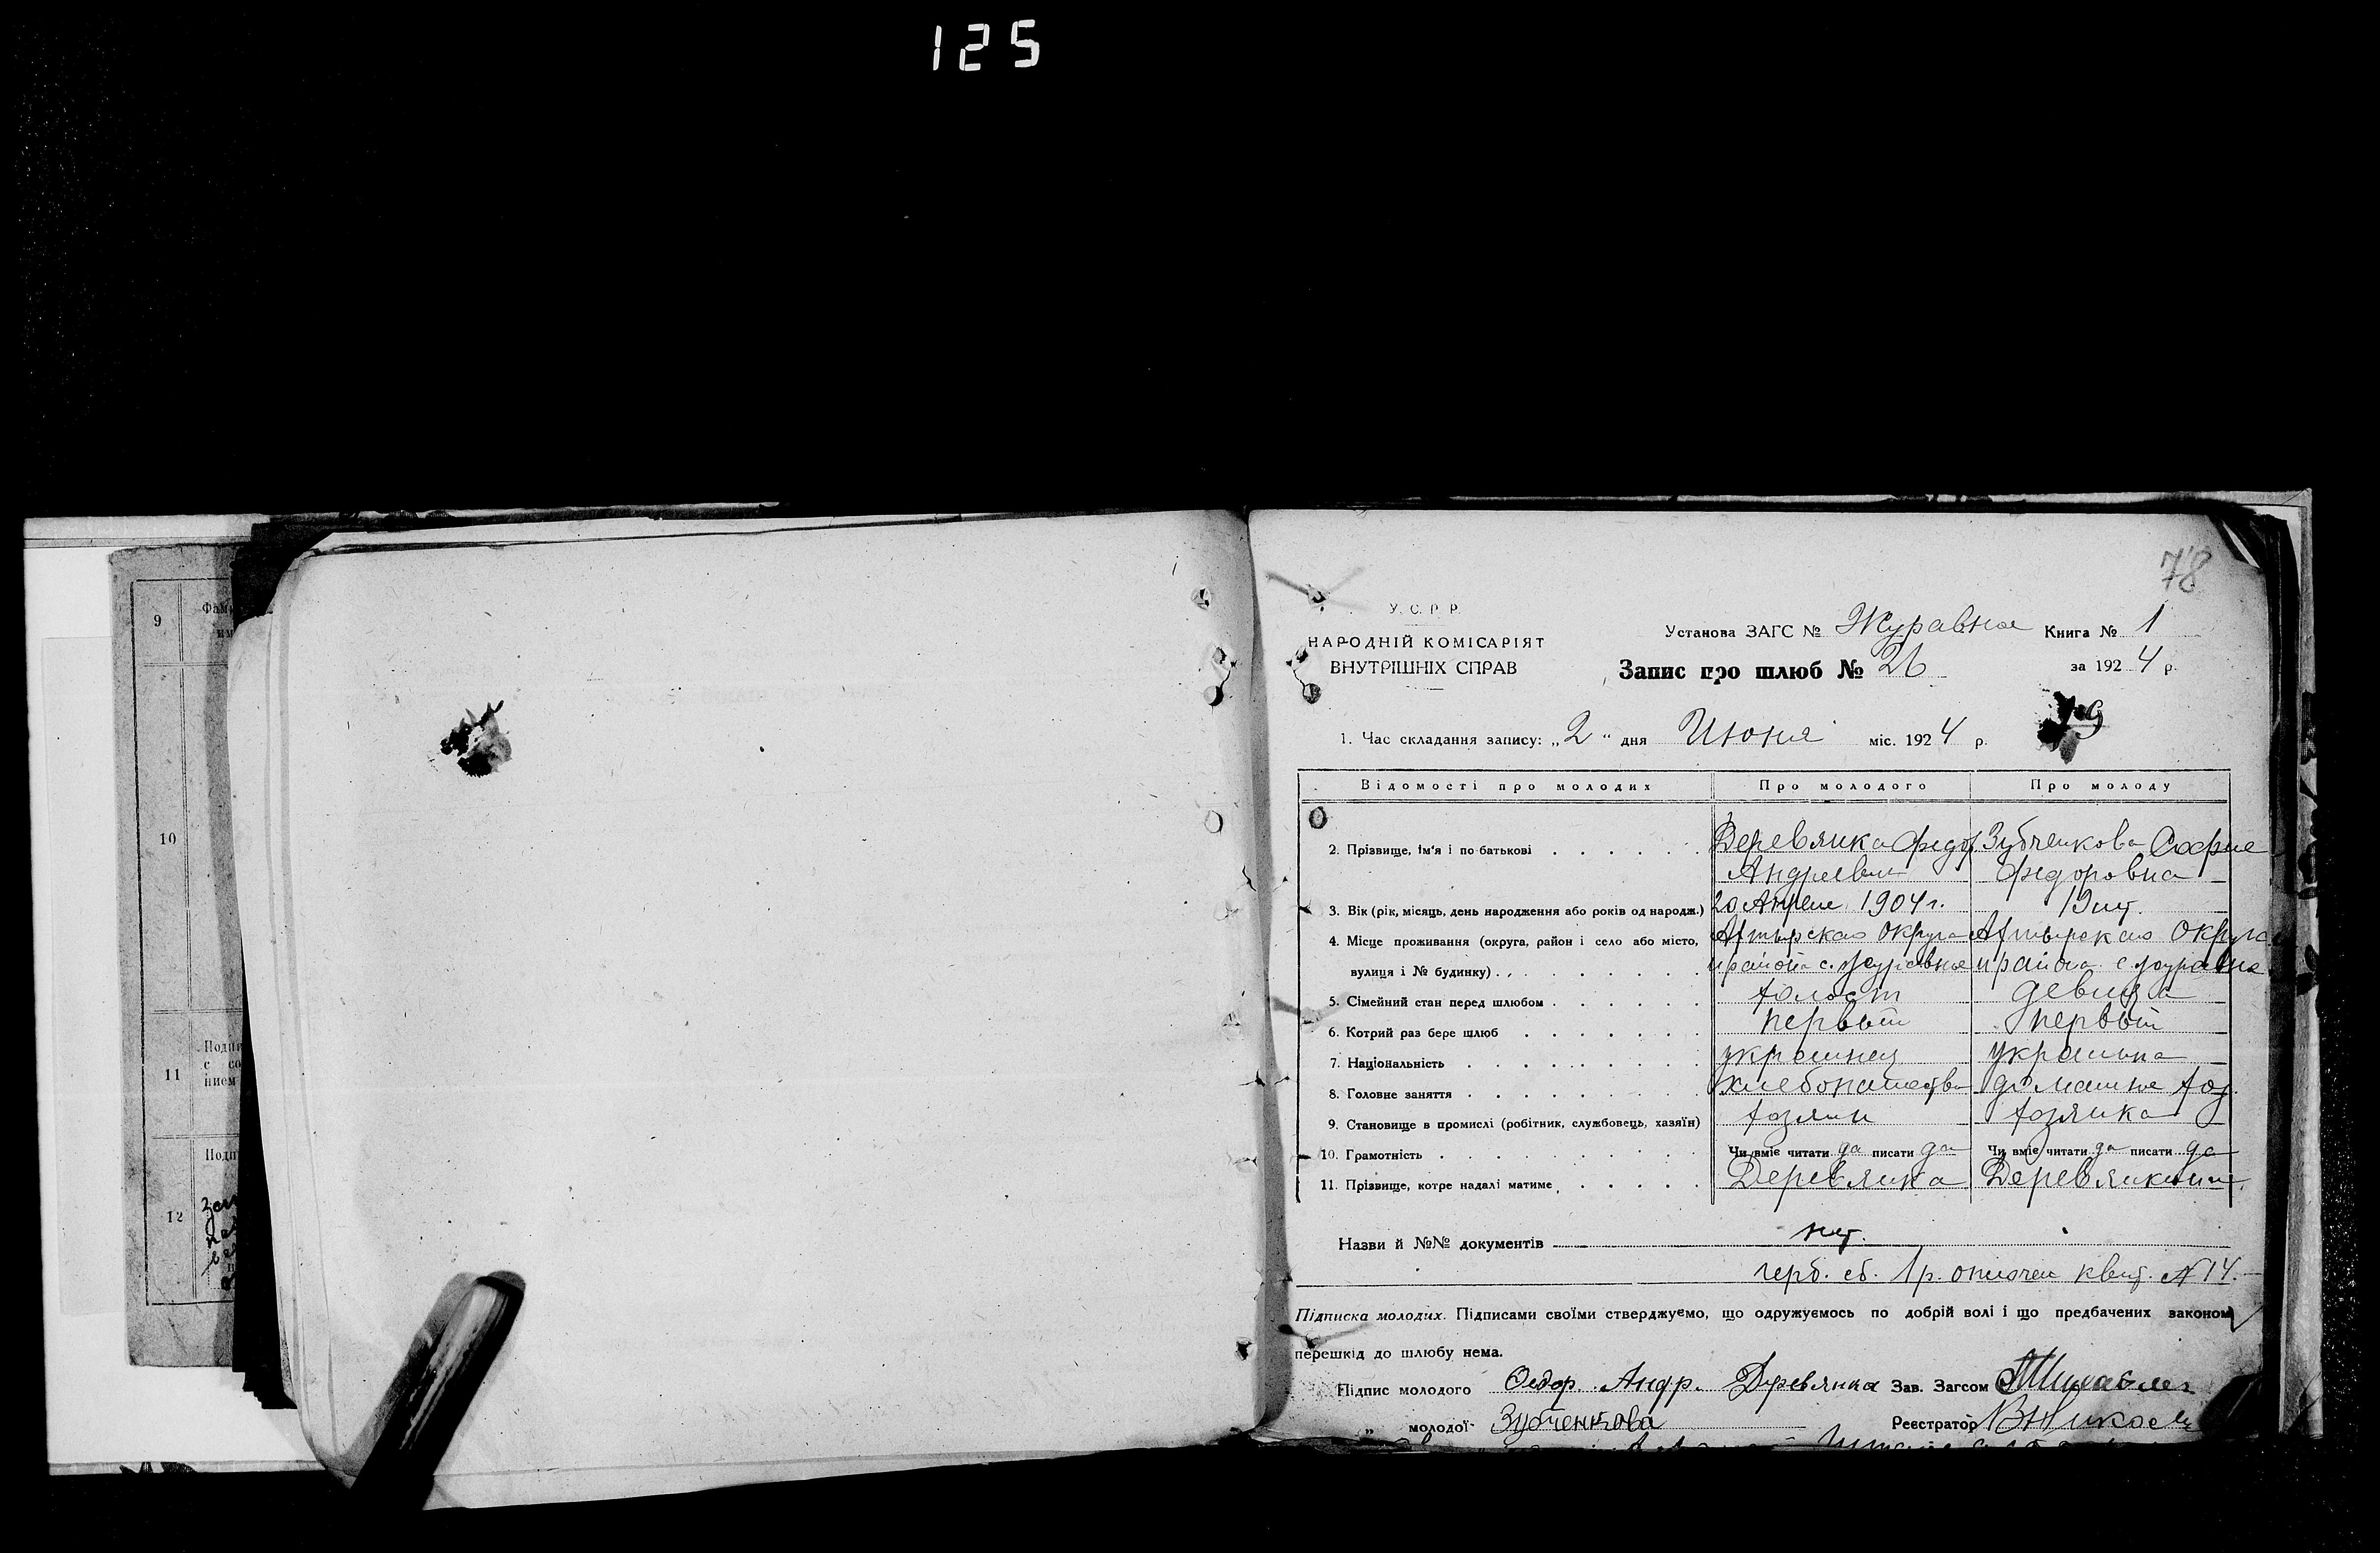 125
78
У. С. Р. Р.
НАРОДНІЙ КОМІСАРІЯТ
ВНУТРІШНІХ СПРАВ
Установа ЗАГС № Журавное Книга № 1
Запис про шлюб № 26 за 1924 р.
79
1. Час складання запису: „2" дня Июня міс. 1924 р.
Відомості про молодих Про молодого Про молоду
2. Прізвище, ім'я і по батькові Деревянка Федор Зубченкова Софие
Андреевич Федоровна
3. Вік (рік, місяць, день народження або років од народж.) 20 Апреля 1904 г. 19 лет.
4. Місце проживання (округа, район і село або місто, Ахтырскаго Округа Ахтырскаго Округа
вулиця і № будинку) и района с. Журавное и района с Журавное
5. Сімейний стан перед шлюбом холост девица
6. Котрий раз бере шлюб первый первый
7. Національність украинец украинка
8. Головне заняття хлебопашество домашнее хоз.
9. Становище в промислі (робітник, службовець, хазяїн) хозяин хозяйка
10. Грамотність Чи вміє читати да писати да Чи вміє читати да писати да
11. Прізвище, котре надалі матиме Деревянка Деревянкина
Назви й №№ документів нет.
герб. сб. 1 р. оплочен квит. № 14.
Підписка молодих. Підписами своїми стверджуємо, що одружуємось по добрій волі і що предбачених законом
перешкід до шлюбу нема.
Підпис молодого Федор Андр. Деревянка Зав. Загсом
„ молодої Зубченкова Реєстратор
9 Фам
им
10
11 Подпи
с со
нием
12 Подп